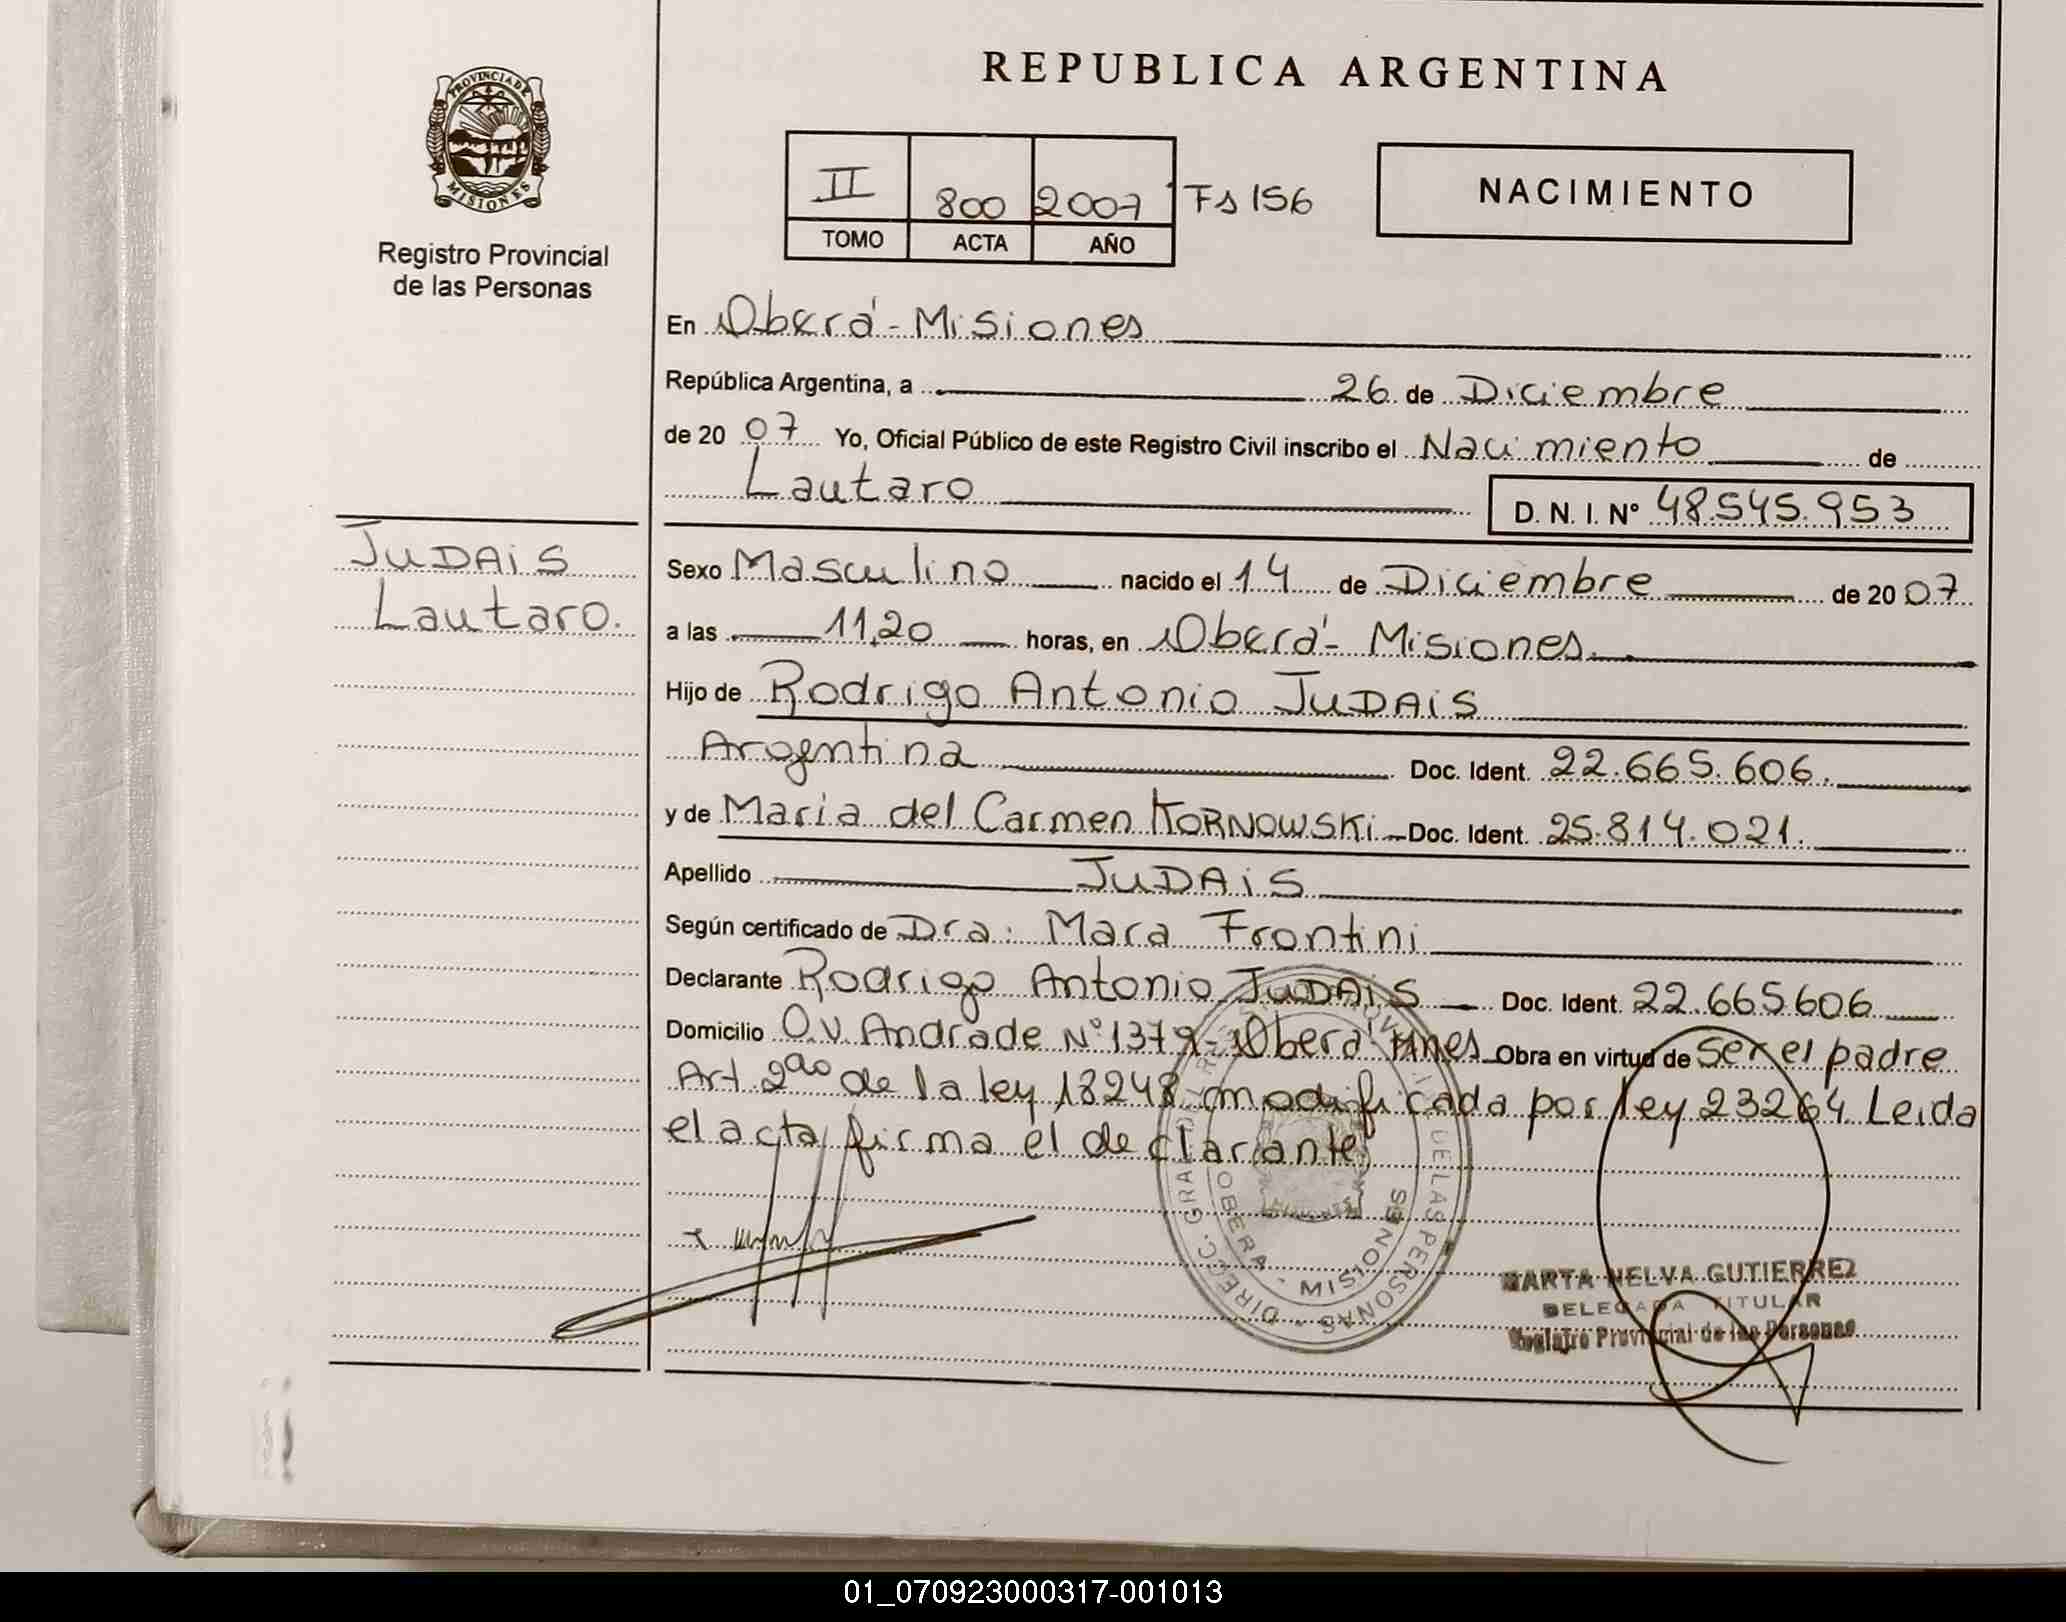 REPUBLICA ARGENTINA
PROVINCIA DE
MISIONES
Registro Provincial
de las Personas
II 800 2007 Fs 156
TOMO ACTA AÑO
NACIMIENTO
En Oberá - Misiones
República Argentina, a 26 de Diciembre
de 20 07 Yo, Oficial Público de este Registro Civil inscribo el Nacimiento de
Lautaro D. N. I. N° 48.545.953
JUDAiS
Lautaro.
Sexo Masculino nacido el 14 de Diciembre de 20 07
a las 11,20 horas, en Oberá - Misiones.
Hijo de Rodrigo Antonio JUDAiS
Argentina Doc. Ident. 22.665.606.
y de Maria del Carmen KORNOWSKi Doc. Ident. 25.814.021.
Apellido JUDAiS
Según certificado de Dra. Mara Frontini
Declarante Rodrigo Antonio JUDAiS Doc. Ident. 22.665606
Domicilio O.V. Andrade N° 1379 - Oberá Mnes Obra en virtud de ser el padre
Art 2do de la ley 18248 modificada por ley 23264 Leida
el acta firma el declarante
DIREC. GRAL. DEL REGISTRO PROVINCIAL DE LAS PERSONAS
OBERA - MISIONES
MARTA NELVA GUTIERREZ
DELEGADA TITULAR
Registro Provincial de las Personas
01_070923000317-001013